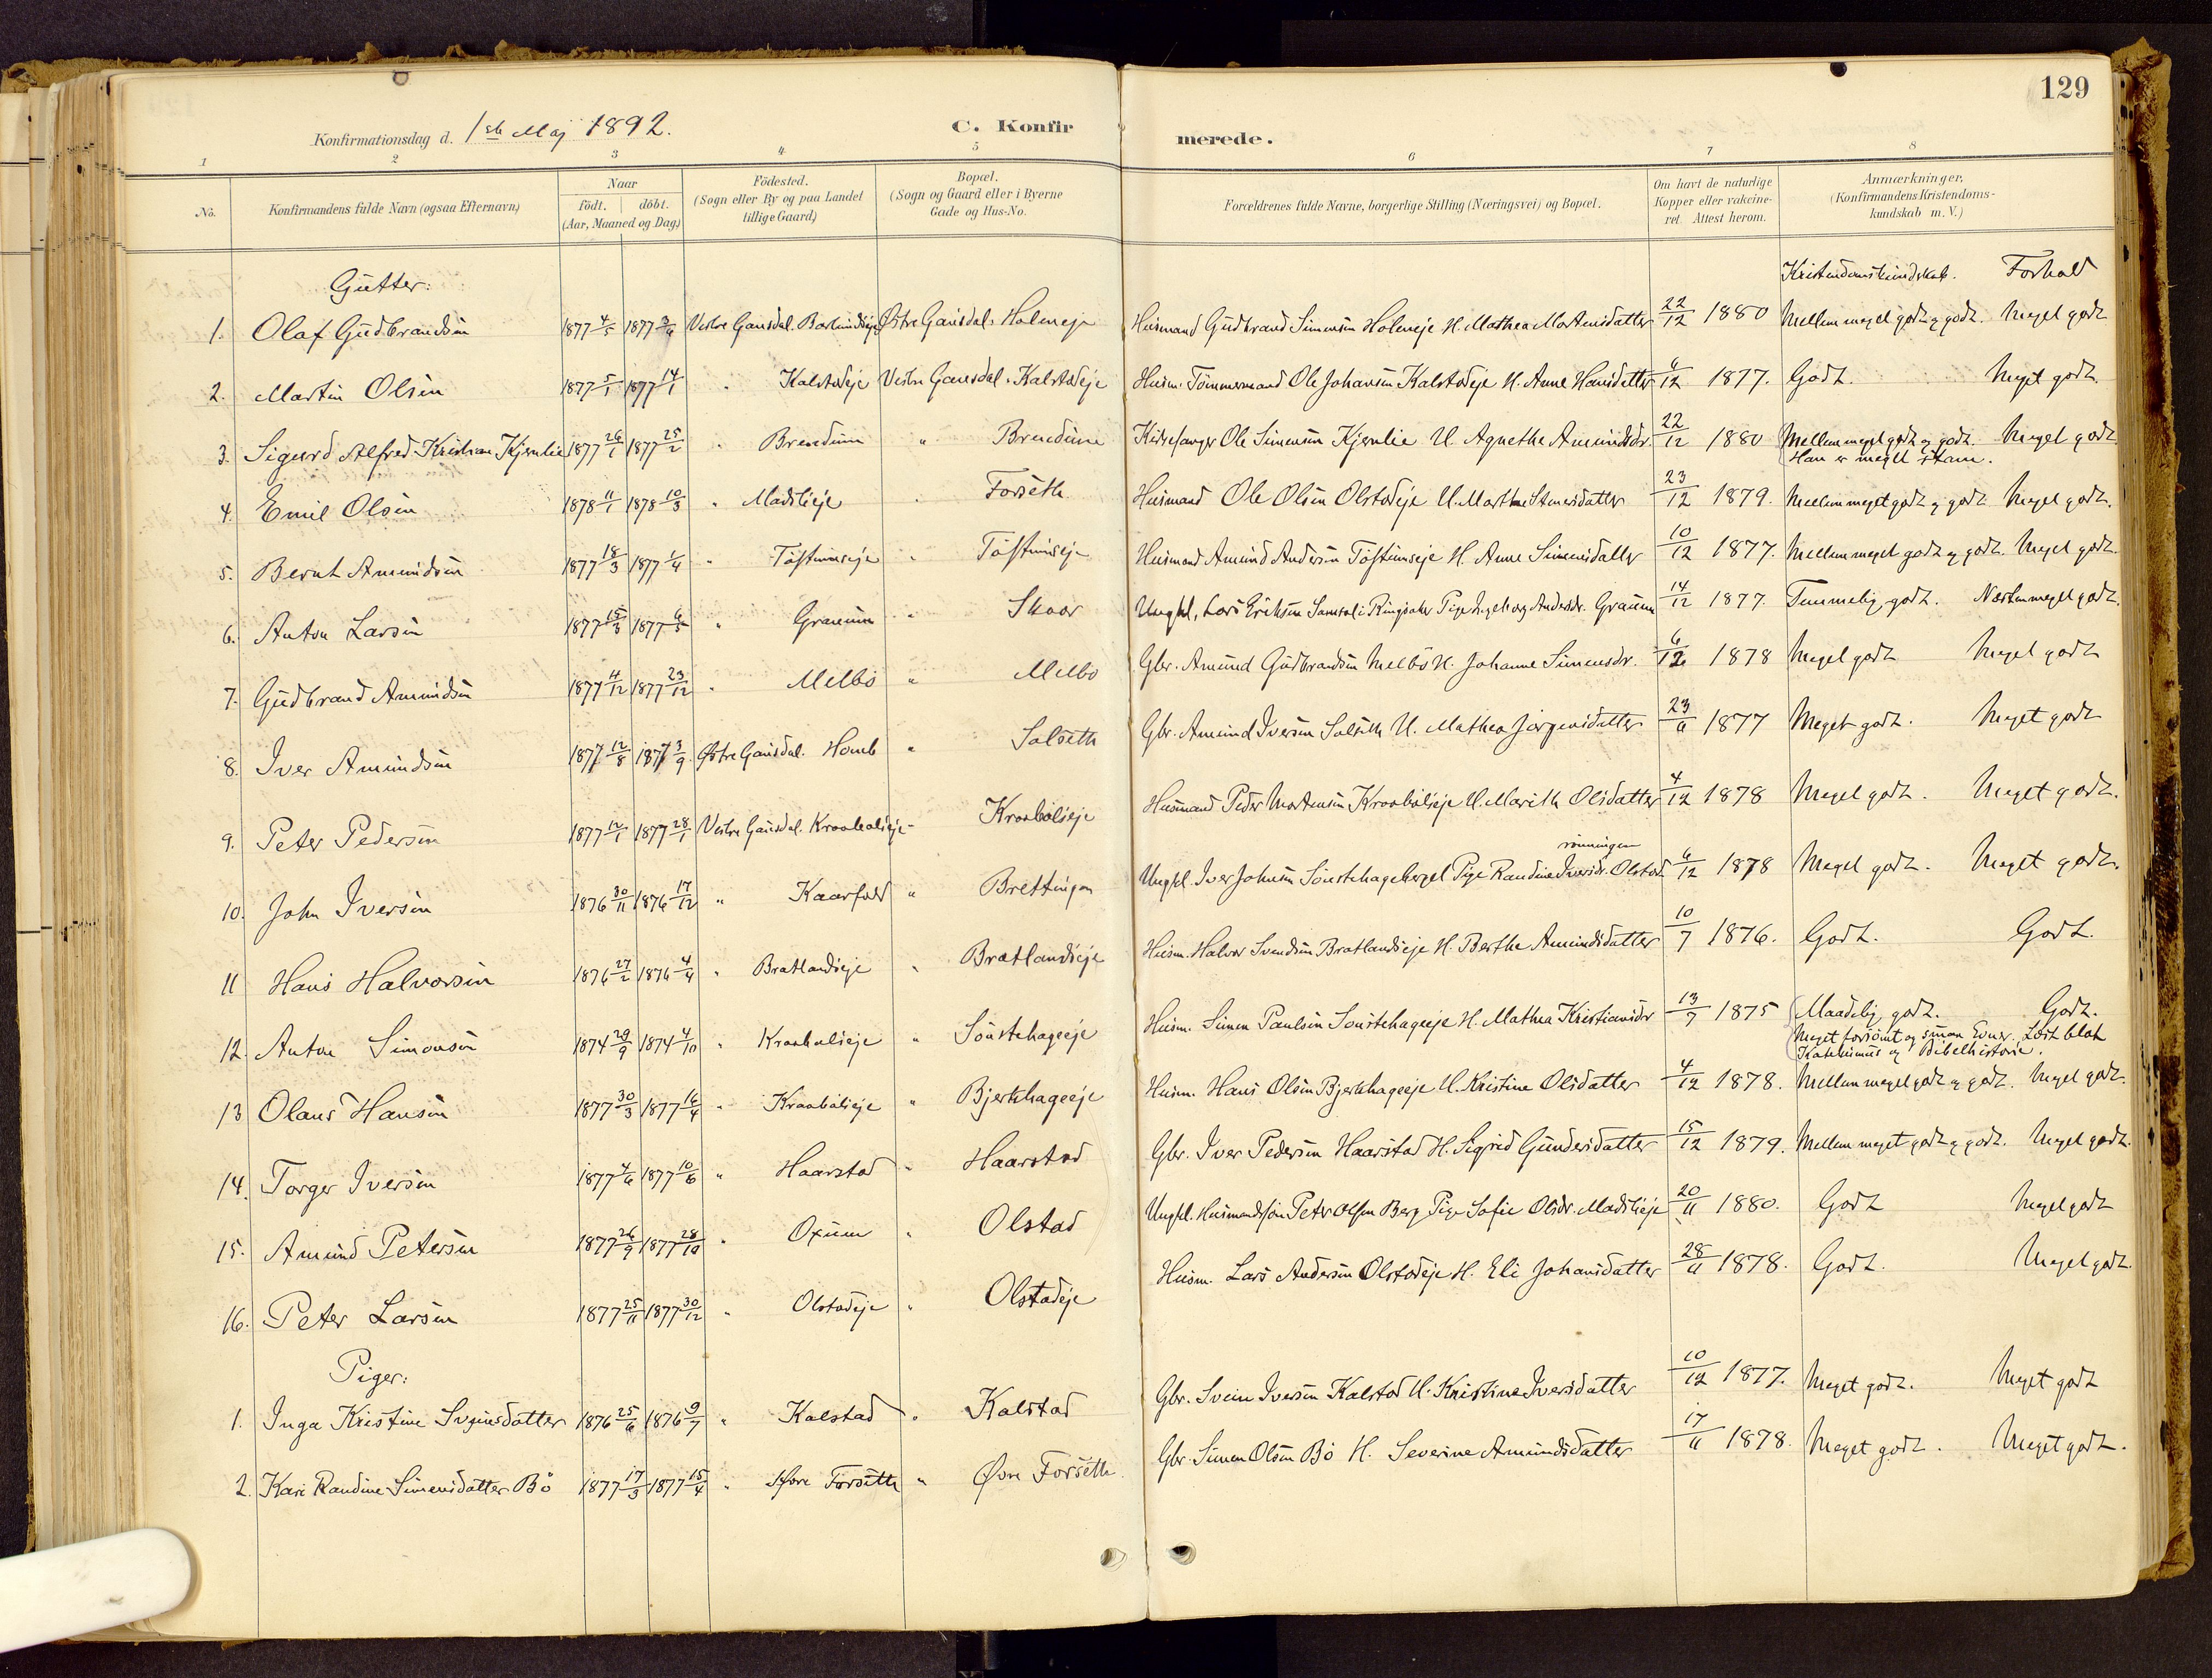 129
Konfirmationsdag d. 1ste Maj 1892.
C. Konfir merede.
1 2 3 4 5 6 7 8
No. Konfirmandens fulde Navn (ogsaa Efternavn) Naar födt. döbt. (Aar, Maaned og Dag) Födested. (Sogn eller By og paa Landet tillige Gaard) Bopæl. (Sogn og Gaard eller i Byerne Gade og Hus-No. Forældrenes fulde Navne, borgerlige Stilling (Næringsvei) og Bopæl. Om havt de naturlige Kopper eller vakcineret. Attest herom. Anmærkninger, (Konfirmandens Kristendomskundskab m. V.)
Gutter: Kristendomskundskab. Forhold
1. Olaf Gudbrandsen 1877 4/5 1877 Vestre Gausdal. Østre Gausdal. Holmeje Husmand Gudbrand Simensen Holmeje H. Mathea Mortensdatter 22/12 1880 Mellem meget godt og godt. Meget godt
2. Martin Olsen 1877 5/1 1877 14/1 " Kalstadeje Vestre Gausdal. Kalstadeje Husm. Tömmermand Ole Johansen Kalstadeje H. Anne Hansdatter 6/12 1877. Godt. Meget godt.
3. Sigurd Alfred Kristian Kjernlie 1877 26/1 1877 25/2 " Brendum " Brendum Kirkesanger Ole Simensen Kjernlie H. Agnethe Amundsdr. 22/12 1880 Mellem meget godt og godt. Meget godt
Han er meget stam.
4. Emil Olsen 1878 11/1 1878 10/3 " Madslieje " Forseth Husmand Ole Olsen Olstadeje H. Marthe Simensdatter 23/12 1879. Mellem meget godt og godt Meget godt.
5. Bernt Amundsen 1877 18/3 1877 1/4 " Töftumseje " Töftumseje Husmand Amund Andersen Töftumseje H. Anne Simensdatter 10/12 1877. Mellem meget godt og godt. Meget godt.
6. Anton Larsen 1877 15/3 1877 6/5 " Grauum " Skaar Ungkl. Lars Eriksen Samsal i Ringsaker Pige Ingeborg Andersdr. Grauum 14/12 1877. Temmelig godt. Næsten meget godt.
7. Gudbrand Amundsen 1877 4/12 1877 23/12 " Melbö " Melbö Gbr. Amund Gudbrandsen Melbö H. Johanne Simensdr. 6/12 1878 Meget godt Meget godt
8. Iver Amundsen 1877 12/8 1877 3/9 Østre Gausdal. Homb " Salseth Gbr. Amund Iversen Salseth H. Mathea Jørgensdatter 23/11 1877 Meget godt. Meget godt
9. Peter Pedersen 1877 12/1 1877 28/1 Vestre Gausdal. Kraabölseje - Kraabölseje Husmand Peder Mortensen Kraabölseje H. Marith Olsdatter 4/12 1878 Meget godt. Meget godt.
10. John Iversen 1876 30/11 1876 17/12 " " Brettingen Ungkl. Iver Johnsen Sönstehageberget Pige Randine Iversdr. Olstad rönningen 6/12 1878 Meget godt. Meget godt.
11 Hans Halvorsen 1876 27/2 1876 4/4 " Bratlandseje " Bratlandseje Husm. Halvor Svendsen Bratlandseje H. Berthe Amundsdatter 10/7 1876. Godt. Godt.
12. Anton Simonsen 1874 29/9 1874 4/10 " Kraabölseje " Sönstehageeje Husm. Simen Paulsen Sönstehageeje H. Mathea Kristiansdr 13/7 1875 Maadelig godt. Godt.
Meget forsömt og smaa Evner. Læst blot
Katekismus og Bibelhistorie.
13 Olaus Hansen 1877 30/3 1877 16/4 " Kraabölseje " Bjerkhageeje Husm. Hans Olsen Bjerkhageeje H. Kristine Olsdatter 4/12 1878. Mellem meget godt og godt. Meget godt.
14. Torger Iversen 1877 4/6 1877 10/6 " Haarstad " Haarstad Gbr. Iver Pedersen Haarstad H. Sigrid Gundersdatter 15/12 1879. Mellem meget godt og godt. Meget godt.
15. Amund Petersen 1877 26/9 1877 28/10 " Oxum " Olstad Ungkl. Husmandssön Peter Olsen Berg Pige Sofie Olsdr. Madslieje 20/11 1880. Godt Meget godt
16. Peter Larsen 1877 25/11 1877 30/12 " Olstadeje " Olstadeje Husm. Lars Andersen Olstadeje H. Eli Johansdatter 28/11 1878. Godt. Meget godt.
Piger:
1. Inga Kristine Svensdatter 1876 25/6 1876 9/7 " Kalstad " Kalstad Gbr. Svein Iversen Kalstad H. Kristine Iversdatter 10/12 1877. Meget godt. Meget godt
2. Kari Randine Simensdatter Bö 1877 17/3 1877 15/4 " Øvre Forseth " Øvre Forseth Gbr. Simen Olsen Bö H. Severine Amundsdatter 17/11 1878. Meget godt. Meget godt.